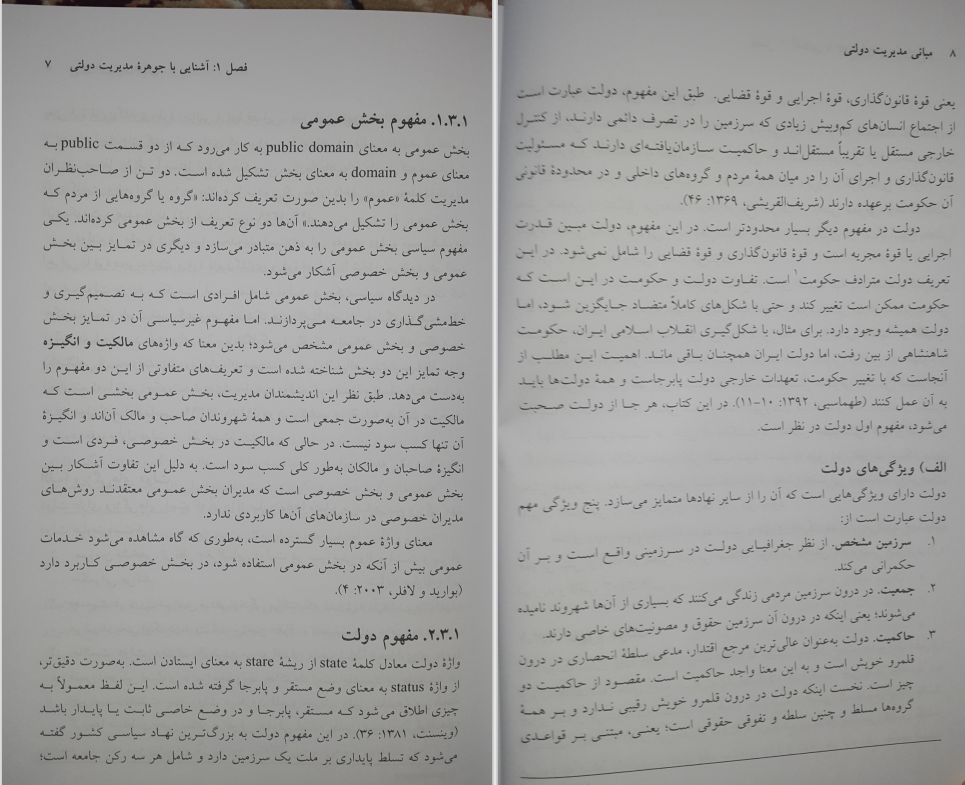 فصل ۱: آشنایی با جوهرهٔ مدیریت دولتی ۷
۱.۳.۱. مفهوم بخش عمومی
بخش عمومی به معنای public domain به کار می‌رود که از دو قسمت public به
معنای عموم و domain به معنای بخش تشکیل شده است. دو تن از صاحب‌نظران
مدیریت کلمهٔ «عموم» را بدین صورت تعریف کرده‌اند: «گروه یا گروه‌هایی از مردم که
بخش عمومی را تشکیل می‌دهند.» آن‌ها دو نوع تعریف از بخش عمومی کرده‌اند. یکی
مفهوم سیاسی بخش عمومی را به ذهن متبادر می‌سازد و دیگری در تمایز بین بخش
عمومی و بخش خصوصی آشکار می‌شود.
در دیدگاه سیاسی، بخش عمومی شامل افرادی است که به تصمیم‌گیری و
خط‌مشی‌گذاری در جامعه می‌پردازند. اما مفهوم غیرسیاسی آن در تمایز بخش
خصوصی و بخش عمومی مشخص می‌شود؛ بدین معنا که واژه‌های مالکیت و انگیزه
وجه تمایز این دو بخش شناخته شده است و تعریف‌های متفاوتی از این دو مفهوم را
به‌دست می‌دهد. طبق نظر این اندیشمندان مدیریت، بخش عمومی بخشی است که
مالکیت در آن به‌صورت جمعی است و همهٔ شهروندان صاحب و مالک آن‌اند و انگیزهٔ
آن تنها کسب سود نیست. در حالی که مالکیت در بخش خصوصی، فردی است و
انگیزهٔ صاحبان و مالکان به‌طور کلی کسب سود است. به دلیل این تفاوت آشکار بین
بخش عمومی و بخش خصوصی است که مدیران بخش عمومی معتقدند روش‌های
مدیران خصوصی در سازمان‌های آن‌ها کاربردی ندارد.
معنای واژهٔ عموم بسیار گسترده است، به‌طوری که گاه مشاهده می‌شود خدمات
عمومی بیش از آنکه در بخش عمومی استفاده شود، در بخش خصوصی کاربرد دارد
(بوارید و لافلر، ۲۰۰۳: ۴).
۲.۳.۱. مفهوم دولت
واژهٔ دولت معادل کلمهٔ state از ریشهٔ stare به معنای ایستادن است. به‌صورت دقیق‌تر،
از واژهٔ status به معنای وضع مستقر و پابرجا گرفته شده است. این لفظ معمولاً به
چیزی اطلاق می‌شود که مستقر، پابرجا و در وضع خاصی ثابت یا پایدار باشد
(وینسنت، ۱۳۸۱: ۳۶). در این مفهوم دولت به بزرگ‌ترین نهاد سیاسی کشور گفته
می‌شود که تسلط پایداری بر ملت یک سرزمین دارد و شامل هر سه رکن جامعه است؛
۸ مبانی مدیریت دولتی
یعنی قوهٔ قانون‌گذاری، قوهٔ اجرایی و قوهٔ قضایی. طبق این مفهوم، دولت عبارت است
از اجتماع انسان‌های کم‌وبیش زیادی که سرزمین را در تصرف دائمی دارند، از کنترل
خارجی مستقل یا تقریباً مستقل‌اند و حاکمیت سازمان‌یافته‌ای دارند که مسئولیت
قانون‌گذاری و اجرای آن را در میان همهٔ مردم و گروه‌های داخلی و در محدودهٔ قانونی
آن حکومت برعهده دارند (شریف‌القریشی، ۱۳۶۹: ۴۶).
دولت در مفهوم دیگر بسیار محدودتر است. در این مفهوم، دولت مبین قدرت
اجرایی یا قوهٔ مجریه است و قوهٔ قانون‌گذاری و قوهٔ قضایی را شامل نمی‌شود. در این
تعریف دولت مترادف حکومت۱ است. تفاوت دولت و حکومت در این است که
حکومت ممکن است تغییر کند و حتی با شکل‌های کاملاً متضاد جایگزین شود، اما
دولت همیشه وجود دارد. برای مثال، با شکل‌گیری انقلاب اسلامی ایران، حکومت
شاهنشاهی از بین رفت، اما دولت ایران همچنان باقی ماند. اهمیت این مطلب از
آنجاست که با تغییر حکومت، تعهدات خارجی دولت پابرجاست و همهٔ دولت‌ها باید
به آن عمل کنند (طهماسبی، ۱۳۹۲: ۱۰-۱۱). در این کتاب، هر جا از دولت صحبت
می‌شود، مفهوم اول دولت در نظر است.
الف) ویژگی‌های دولت
دولت دارای ویژگی‌هایی است که آن را از سایر نهادها متمایز می‌سازد. پنج ویژگی مهم
دولت عبارت است از:
۱. سرزمین مشخص. از نظر جغرافیایی دولت در سرزمینی واقع است و بر آن
حکمرانی می‌کند.
۲. جمعیت. در درون سرزمین مردمی زندگی می‌کنند که بسیاری از آن‌ها شهروند نامیده
می‌شوند؛ یعنی اینکه در درون آن سرزمین حقوق و مصونیت‌های خاصی دارند.
۳. حاکمیت. دولت به‌عنوان عالی‌ترین مرجع اقتدار، مدعی سلطهٔ انحصاری در درون
قلمرو خویش است و به این معنا واجد حاکمیت است. مقصود از حاکمیت دو
چیز است. نخست اینکه دولت در درون قلمرو خویش رقیبی ندارد و بر همهٔ
گروه‌ها مسلط و چنین سلطه و تفوقی حقوقی است؛ یعنی، مبتنی بر قواعدی